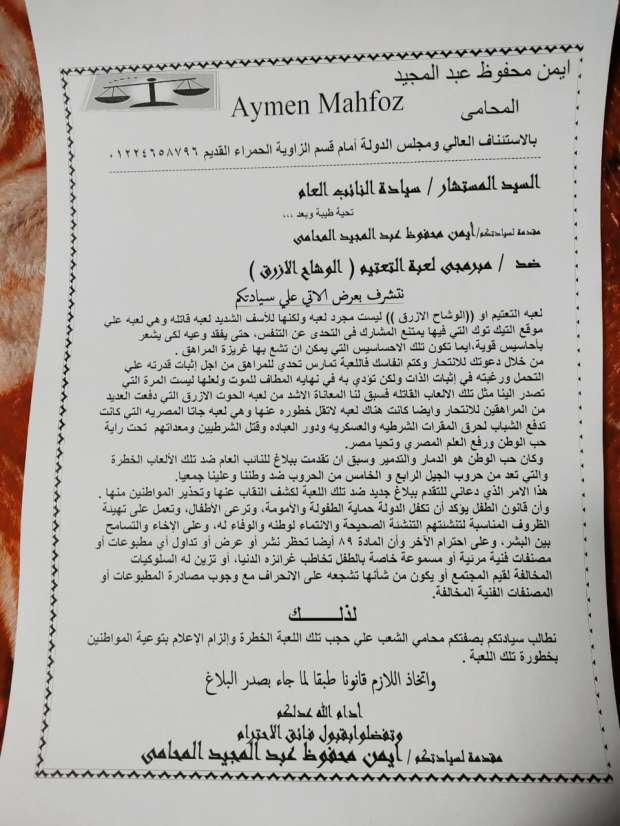 ايمن محفوظ عبد المجيد
Aymen Mahfoz
المحامى
بالاستئناف العالي ومجلس الدولة أمام قسم الزاوية الحمراء القديم ٠١٢٢٤٦٥٨٧٩٦
السيد المستشار / سيادة النائب العام
تحية طيبة وبعد ,,,
مقدمة لسيادتكم/أيمن محفوظ عبد المجيد المحامى
ضد / مبرمجى لعبة التعتيم ( الوشاح الازرق )
نتشرف بعرض الاتي علي سيادتكم
لعبه التعتيم او ((الوشاح الازرق )) ليست مجرد لعبه ولكنها للأسف الشديد لعبه قاتله وهي لعبه علي
موقع التيك توك التي فيها يمتنع المشارك فى التحدى عن التنفس، حتى يفقد وعيه لكى يشعر
بأحاسيس قوية،ايما تكون تلك الاحساسيس التي يمكن ان تشع بها غريزة المراهق .
من خلال دعوتك للانتحار وكتم انفاسك فاللعبة تمارس تحدي للمراهق من اجل إثبات قدرته علي
التحمل ورغبته في إثبات الذات ولكن تؤدي به في نهايه المطاف للموت ولعلها ليست المرة التي
تصدر الينا مثل تلك الالعاب القاتله فسبق لنا المعاناة الاشد من لعبه الحوت الازرق التي دفعت العديد
من المراهقين للانتحار وايضا كانت هناك لعبه لاتقل خطوره عنها وهي لعبه جاتا المصريه التي كانت
تدفع الشباب لحرق المقرات الشرطيه والعسكريه ودور العباده وقتل الشرطيين ومعداتهم تحت راية
حب الوطن ورفع العلم المصري وتحيا مصر.
وكان حب الوطن هو الدمار والتدمير وسبق ان تقدمت ببلاغ للنائب العام ضد تلك الألعاب الخطرة
والتي تعد من حروب الجيل الرابع و الخامس من الحروب ضد وطننا وعلينا جمعيا.
هذا الامر الذي دعاني للتقدم ببلاغ جديد ضد تلك اللعبة لكشف النقاب عنها وتحذير المواطنين منها .
وأن قانون الطفل يؤكد أن تكفل الدولة حماية الطفولة والأمومة، وترعى الأطفال، وتعمل على تهيئة
الظروف المناسبة لتنشئتهم التنشئة الصحيحة والانتماء لوطنه والوفاء له، وعلى الإخاء والتسامح
بين البشر، وعلى احترام الآخر وأن المادة ٨٩ أيضا تحظر نشر أو عرض أو تداول أي مطبوعات أو
مصنفات فنية مرئية أو مسموعة خاصة بالطفل تخاطب غرائزه الدنيا، أو تزين له السلوكيات
المخالفة لقيم المجتمع أو يكون من شأنها تشجعه على الانحراف مع وجوب مصادرة المطبوعات أو
المصنفات الفنية المخالفة.
لذلـــــك
نطالب سيادتكم بصفتكم محامي الشعب علي حجب تلك اللعبة الخطرة وإلزام الإعلام بتوعية المواطنين
بخطورة تلك اللعبة .
واتخاذ اللازم قانونا طبقا لما جاء بصدر البلاغ
أدام الله عدلكم
وتفضلوا بقبول فائق الاحترام
مقدمة لسيادتكم / أيمن محفوظ عبد المجيد المحامى